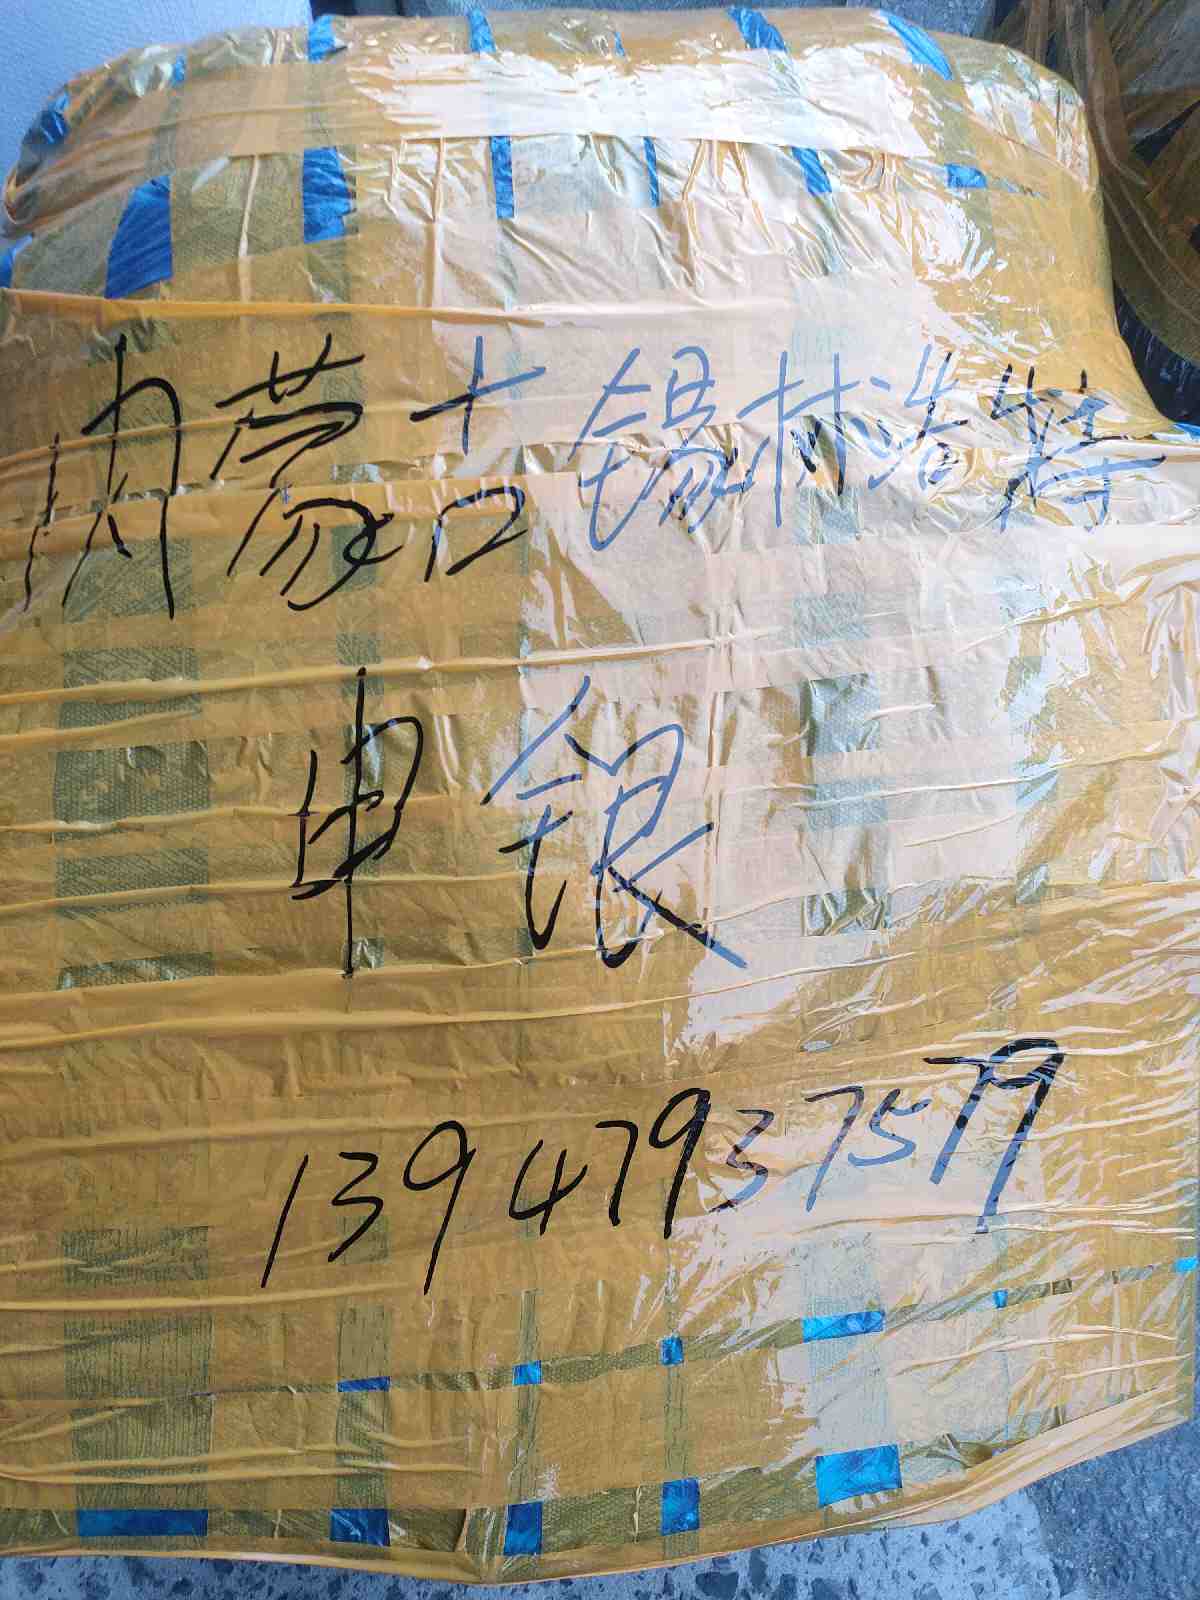 内蒙古锡林浩特
申银
13947937579